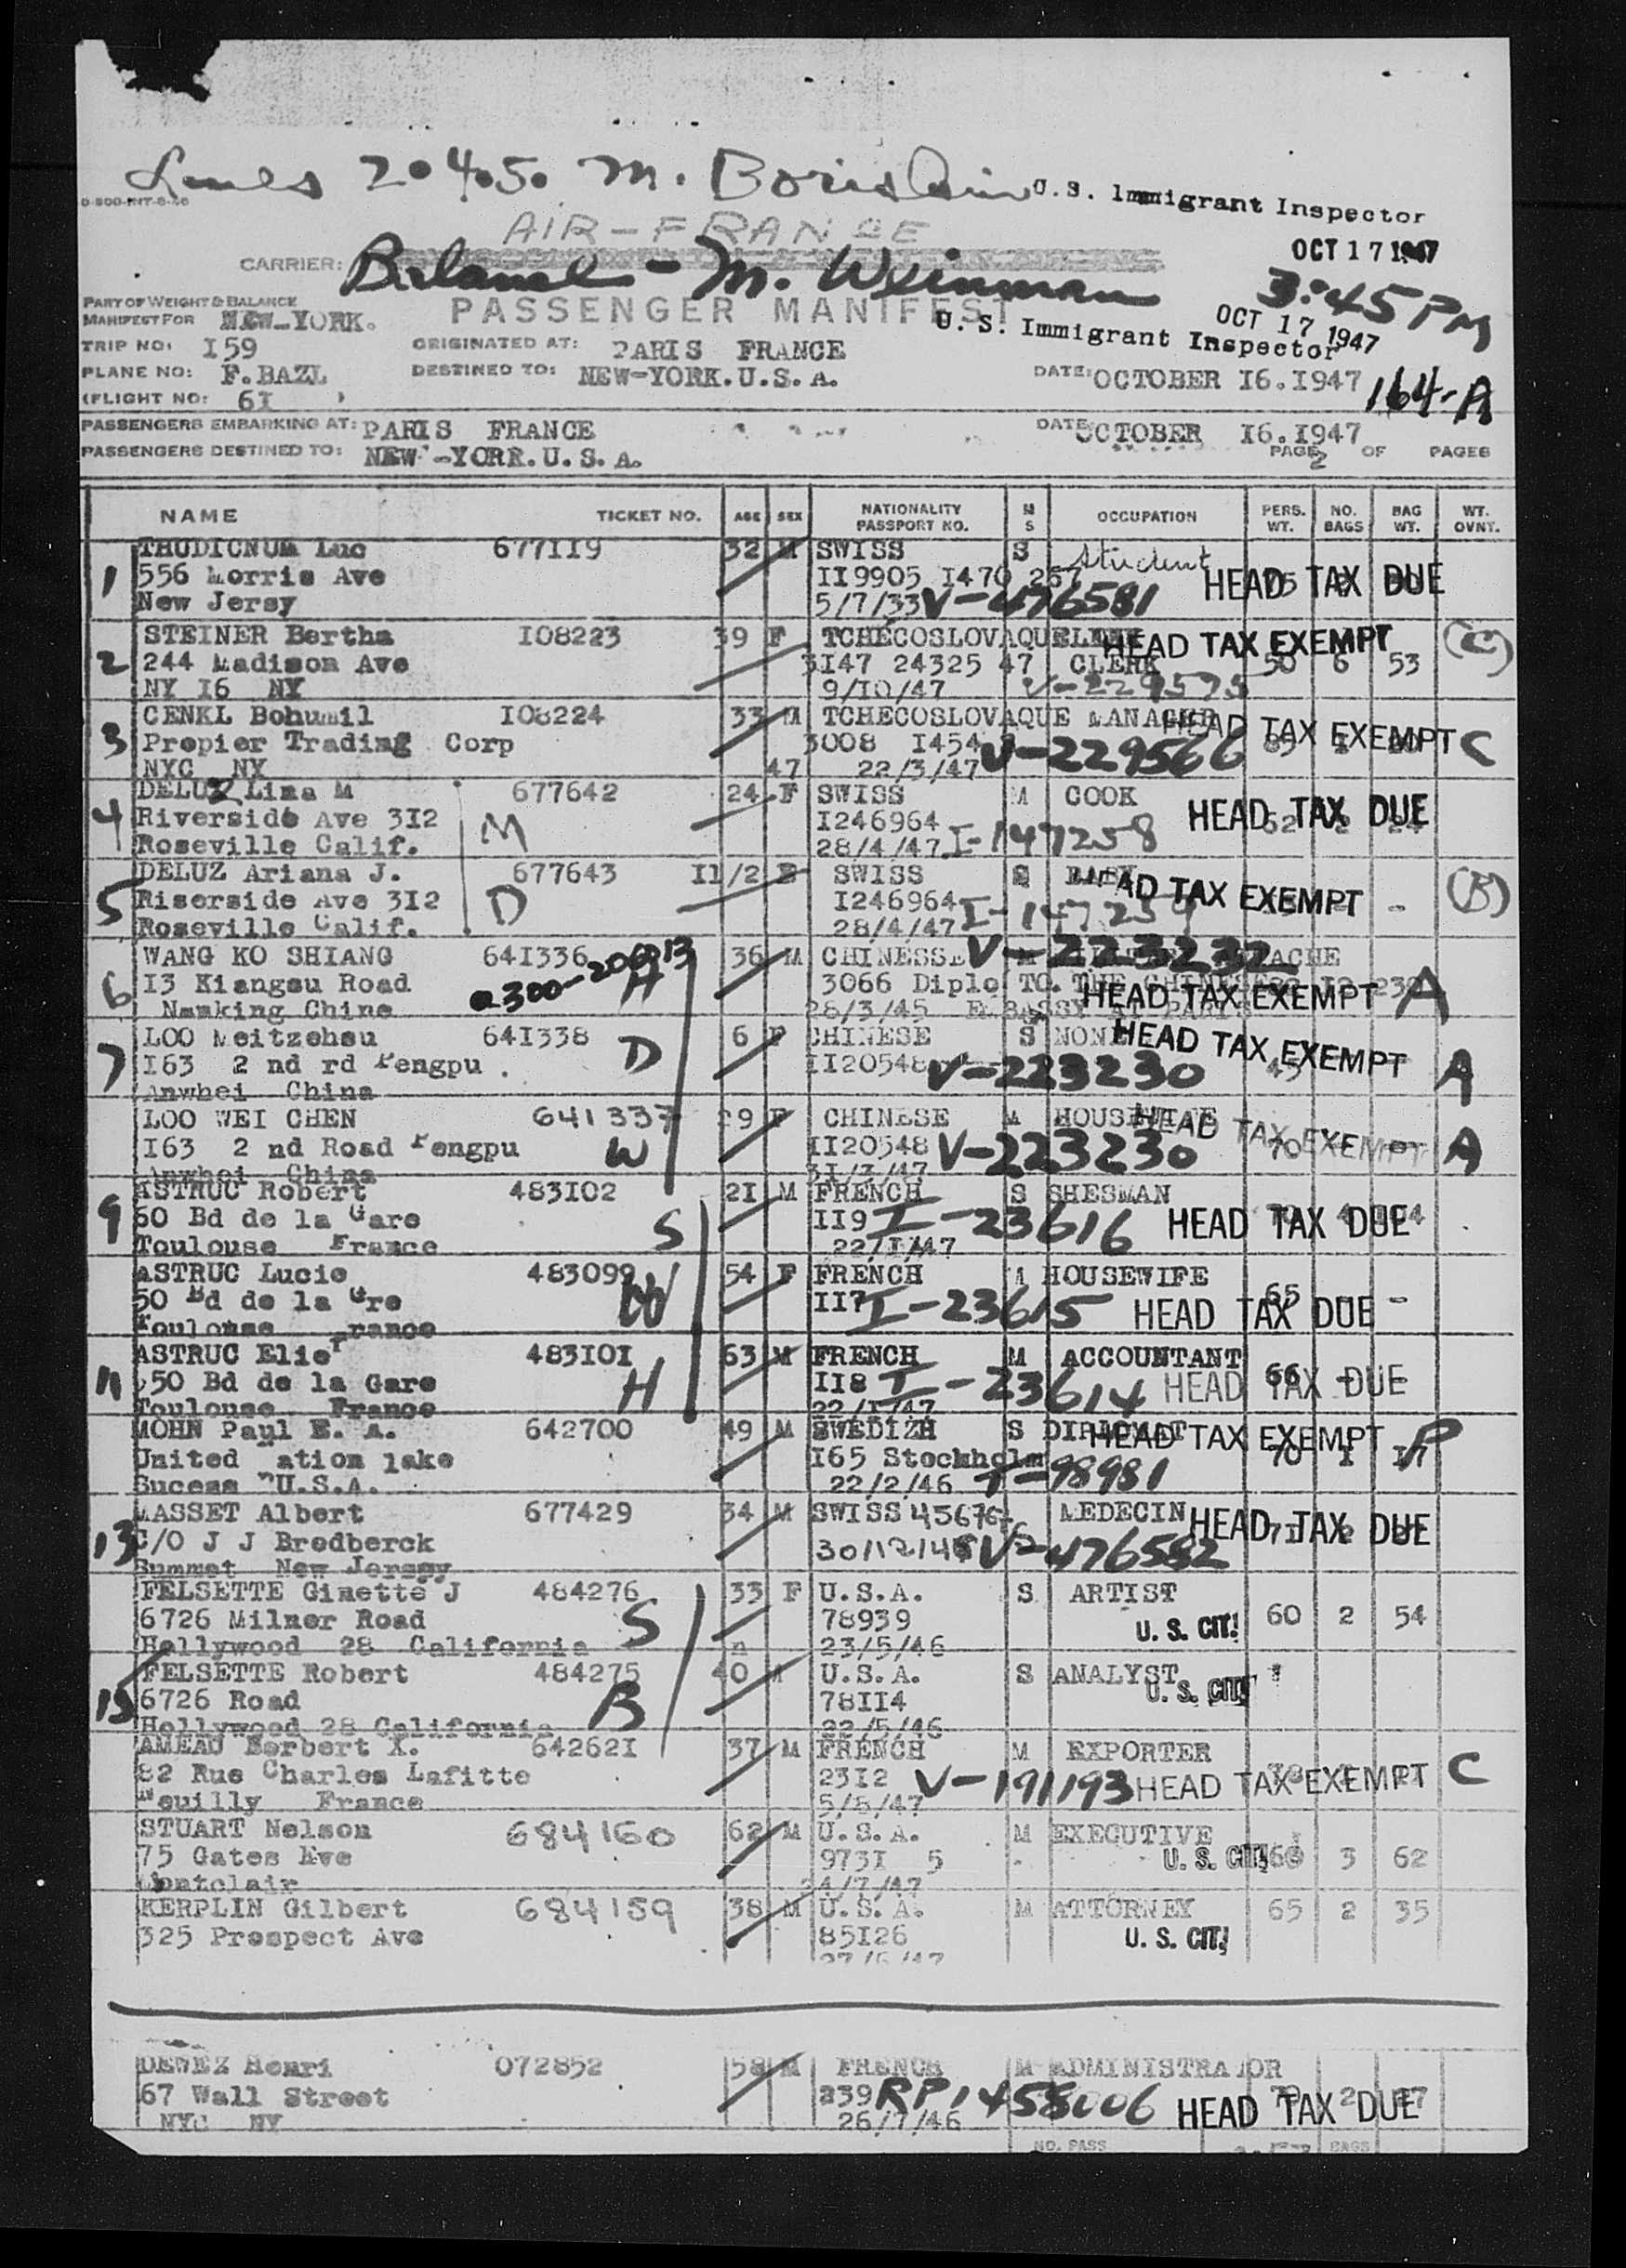 Lines 2.4.5. M.
U.S. Immigrant Inspector
AIR-FRANCE
OCT 17 1947
CARRIER: Balance - M. Weinman
3:45 PM
PART OF WEIGHT & BALANCE
MANIFEST FOR NEW-YORK.
PASSENGER MANIFEST
OCT 17 1947
U. S. Immigrant Inspector
TRIP NO: I59 ORIGINATED AT: PARIS FRANCE
PLANE NO: F.BAZL DESTINED TO: NEW-YORK.U.S.A. DATE: OCTOBER I6.I947
(FLIGHT NO: 6I ) 164-A
PASSENGERS EMBARKING AT: PARIS FRANCE DATE OCTOBER I6.I947
PASSENGERS DESTINED TO: NEW-YORK.U.S.A. PAGE 2 OF PAGES
NAME TICKET NO. AGE SEX NATIONALITY PASSPORT NO. M S OCCUPATION PERS. WT. NO. BAGS BAG WT. WT. OVNT.
THUDICNUM Luc 677II9 32 M SWISS S Student
1 556 Morris Ave II9905 I470 267 HEAD TAX DUE
New Jersy 5/7/33 V-476581
STEINER Bertha I08223 39 F TCHECOSLOVAQUE HEAD TAX EXEMPT (C)
2 244 Madison Ave 3I47 24325 47 CLERK 50 6 53
NY I6 NY 9/I0/47 V-229575
CENKL Bohumil I08224 33 M TCHECOSLOVAQUE MANAGER HEAD TAX EXEMPT C
3 Propier Trading Corp 3008 I454 V-229566
NYC NY 47 22/3/47
DELUZ Lina M 677642 24 F SWISS M COOK
4 Riverside Ave 3I2 M I246964 HEAD TAX DUE
Roseville Calif. 28/4/47 I-147258
DELUZ Ariana J. 677643 I1/2 SWISS S BABY HEAD TAX EXEMPT (B)
5 Riserside Ave 3I2 D I246964 I-147259
Roseville Calif. 28/4/47
WANG KO SHIANG 64I336 36 M CHINESSE V-223232
6 I3 Kiangsu Road a300-206913 H 3066 Diplo TO THE CHINESE HEAD TAX EXEMPT A
Namking Chine 28/3/45 EMBASSY AT PARIS
LOO Meitzehsu 64I338 6 F CHINESE S NONE HEAD TAX EXEMPT A
7 I63 2 nd rd Pengpu . D II20548 V-223230 45
Anwhei China
LOO WEI CHEN 641337 29 F CHINESE M HOUSEWIFE HEAD TAX EXEMPT A
I63 2 nd Road Pengpu W II20548 V-223230 70
Anwhei China 3I/3/47
ASTRUC Robert 483I02 2I M FRENCH S SHESMAN
9 50 Bd de la Gare S II9 I-23616 HEAD TAX DUE
Toulouse France 22/I/47
ASTRUC Lucie 483099 54 F FRENCH M HOUSEWIFE
50 Bd de la Gre W II7 I-23615 65 HEAD TAX DUE
Toulouse France
ASTRUC Elie 483I0I 63 M FRENCH M ACCOUNTANT
11 50 Bd de la Gare H II8 I-23614 66 HEAD TAX DUE
Toulouse France 22/I/47
MOHN Paul E. A. 642700 49 M SWEDIZH S DIPLOMAT HEAD TAX EXEMPT P
United Nation lake I65 Stockholm 70 I
Sucess U.S.A. 22/2/46 T-98981
MASSET Albert 677429 34 M SWISS 45676 MEDECIN HEAD TAX DUE
13 C/O J J Bredberck 30/12/45 V-476582
Summet New Jersey
FELSETTE Ginette J 484276 33 F U.S.A. S ARTIST
6726 Milner Road S 78939 U. S. CIT. 60 2 54
Hollywood 28 California 23/5/46
FELSETTE Robert 484275 40 M U.S.A. S ANALYST U. S. CIT.
15 6726 Road B 78II4
Hollywood 28 California 22/5/46
AMEAU Herbert X. 64262I 37 M FRENCH M EXPORTER
82 Rue Charles Lafitte 23I2 V-191193 HEAD TAX EXEMPT C
Neuilly France 5/8/47
STUART Nelson 684160 62 M U.S.A. M EXECUTIVE
75 Gates Eve 973I 5 U. S. CIT. 3 62
Montclair 24/7/47
KERPLIN Gilbert 684159 38 M U.S.A. M ATTORNEY 65 2 35
325 Prospect Ave 85I26 U. S. CIT.
DEWEZ Henri 072852 58 M FRENCH M ADMINISTRATOR
67 Wall Street 239 RP1458006 HEAD TAX DUE
NYC NY 26/7/46
NO. PASS BAGS